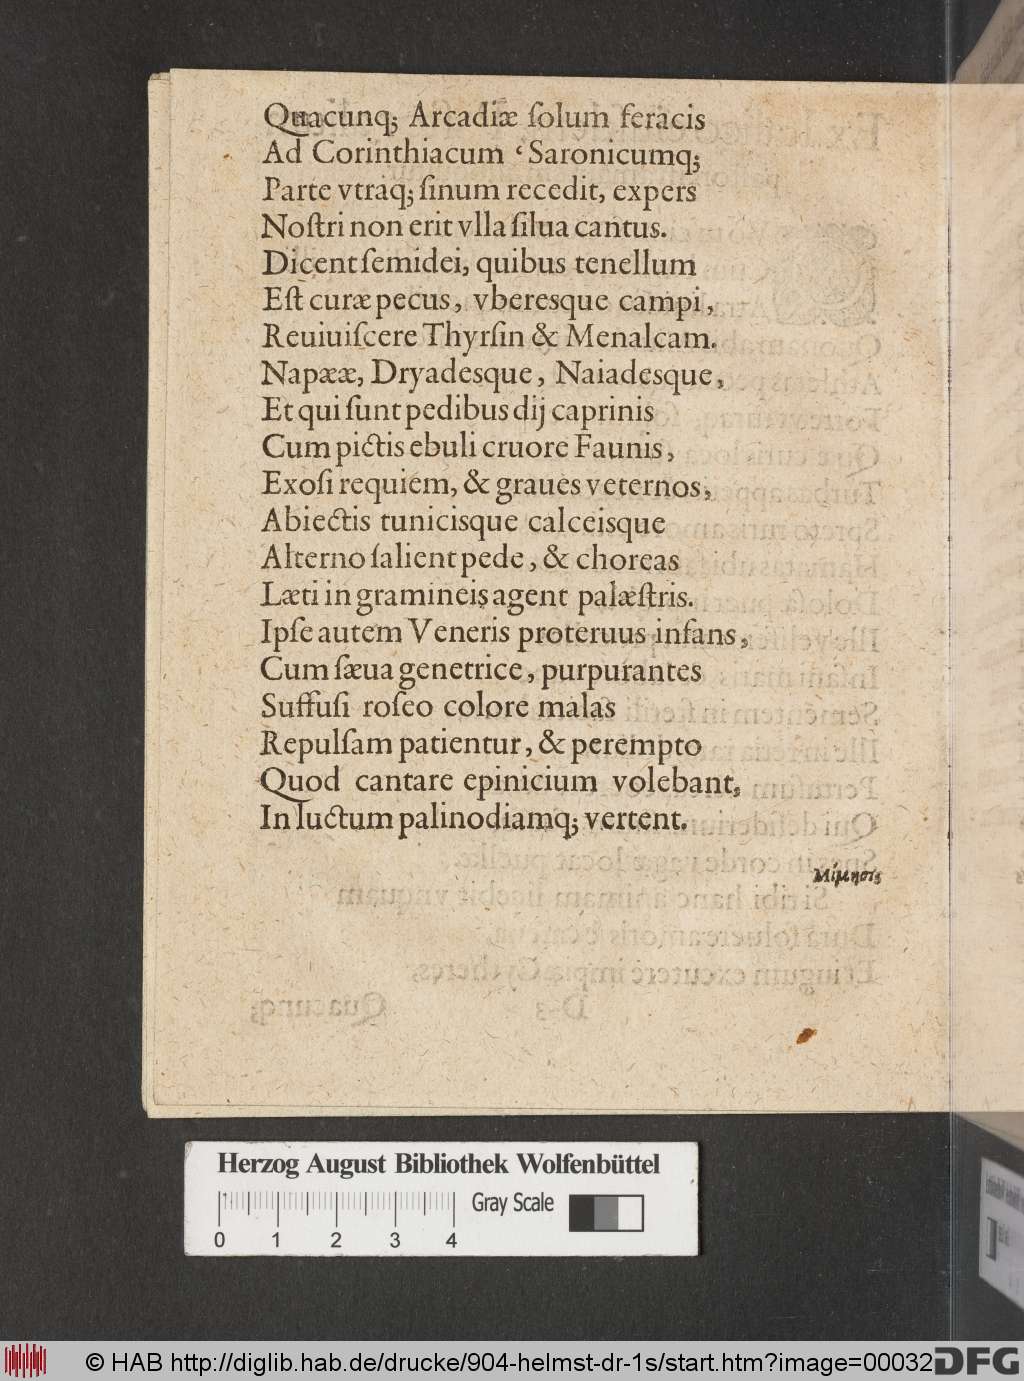 Quacunq; Arcadiæ ſolum feracis
Ad Corinthiacum ‘Saronicumq;
Parte vtraq; ſinum recedit, expers
Noſtri non erit vlla ſilua cantus.
Dicent ſemidei, quibus tenellum
Eſt curæ pecus, vberesque campi,
Reuiuiſcere Thyrſin & Menalcam.
Napææ, Dryadesque, Naiadesque,
Et qui ſunt pedibus dij caprinis
Cum pictis ebuli cruore Faunis,
Exoſi requiem, & graues veternos,
Abiectis tunicisque calceisque
Alterno ſalient pede, & choreas
Læti in gramineis agent palæſtris.
Ipſe autem Veneris proteruus infans,
Cum ſæua genetrice, purpurantes
Suffuſi roſeo colore malas
Repulſam patientur, & perempto
Quod cantare epinicium volebant,
In luctum palinodiamq; vertent.
Μίμησις
Herzog August Bibliothek Wolfenbüttel
Gray Scale
0 1 2 3 4
© HAB http://diglib.hab.de/drucke/904-helmst-dr-1s/start.htm?image=00032
DFG